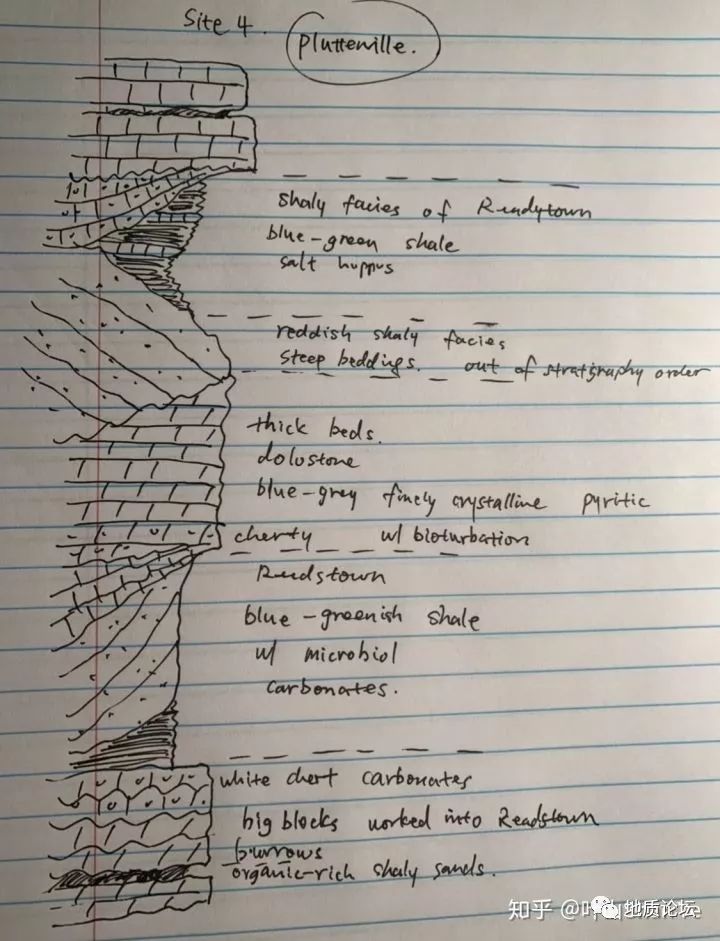 Site 4.
Plutteville.
shaly facies of Readytown
blue-green shale
salt huppus
reddish shaly facies
steep beddings. out of stratgraphy order
thick beds.
dolostone
blue-grey finely crystalline pyritic
cherty w/ bioturbation
Readstown
blue-greenish shale
w/ microbiol
carbonates.
white chert carbonates
big blocks worked into Readstown
burrows
organic-rich shaly sands.
知乎 @叶
地质论坛